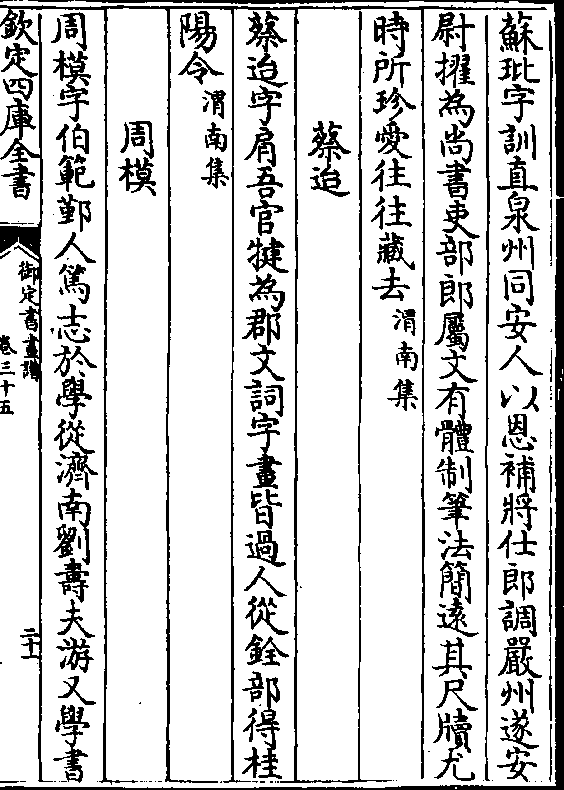 蘇玭字訓直泉州同安人以恩補將仕郎調嚴州遂安
尉擢為尚書吏部郎屬文有體制筆法簡遠其尺牘尤
時所珍愛往往藏去渭南集
蔡迨
蔡迨字肩吾官犍為郡文詞字畫皆過人從銓部得桂
陽令渭南集
周模
周模字伯範鄞人篤志於學從濟南劉壽夫游又學書
欽定四庫全書
御定書畫譜
卷三十五
二十一